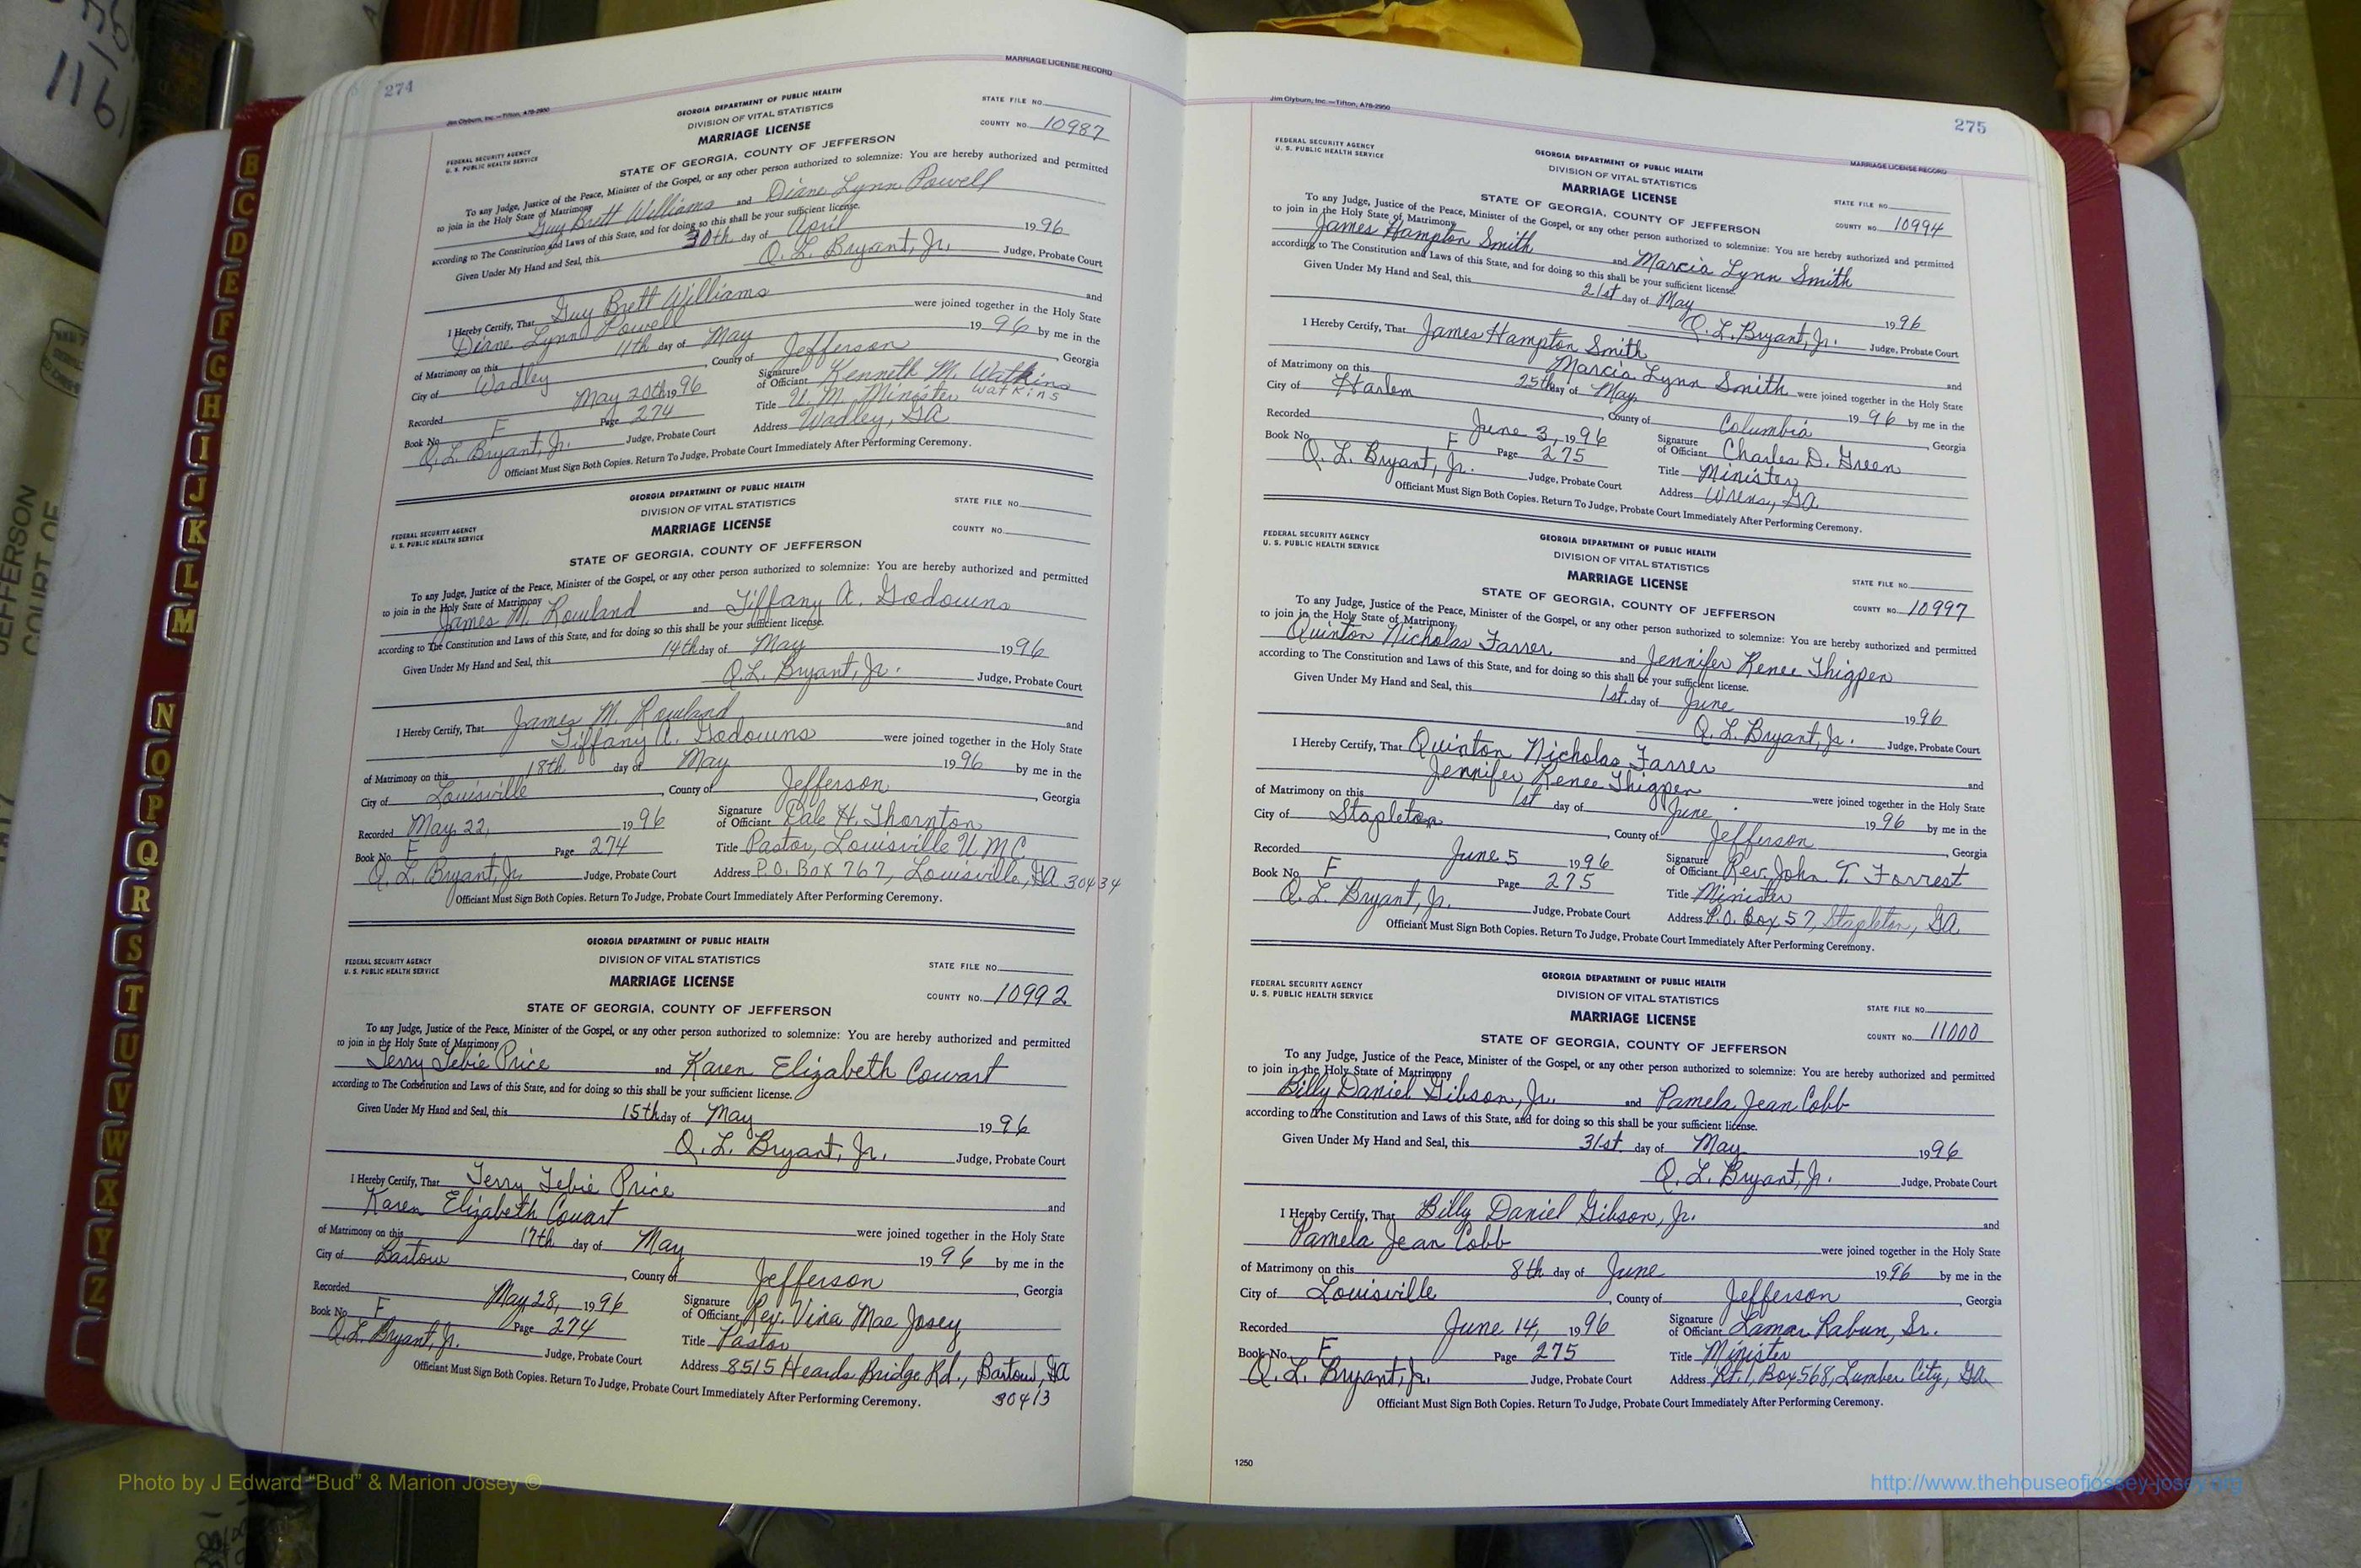 274
MARRIAGE LICENSE RECORD
Jim Clyburn, Inc.—Tifton, A78-2950
GEORGIA DEPARTMENT OF PUBLIC HEALTH
DIVISION OF VITAL STATISTICS
MARRIAGE LICENSE
STATE OF GEORGIA, COUNTY OF JEFFERSON
STATE FILE NO.
COUNTY NO. 10987
FEDERAL SECURITY AGENCY
U. S. PUBLIC HEALTH SERVICE
To any Judge, Justice of the Peace, Minister of the Gospel, or any other person authorized to solemnize: You are hereby authorized and permitted
to join in the Holy State of Matrimony
Guy Brett Williams and Diane Lynn Powell
according to The Constitution and Laws of this State, and for doing so this shall be your sufficient license.
Given Under My Hand and Seal, this 30th day of April 1996
Q. L. Bryant, Jr. Judge, Probate Court
I Hereby Certify, That Guy Brett Williams and
Diane Lynn Powell were joined together in the Holy State
of Matrimony on this 11th day of May 1996 by me in the
City of Wadley, County of Jefferson, Georgia
Recorded May 20th 1996 Signature of Officiant Kenneth M. Watkins
Watkins
Book No. F Page 274 Title U. M. Minister
Q. L. Bryant, Jr. Judge, Probate Court Address Wadley, GA
Officiant Must Sign Both Copies. Return To Judge, Probate Court Immediately After Performing Ceremony.
GEORGIA DEPARTMENT OF PUBLIC HEALTH
DIVISION OF VITAL STATISTICS
MARRIAGE LICENSE
STATE OF GEORGIA, COUNTY OF JEFFERSON
STATE FILE NO.
COUNTY NO.
FEDERAL SECURITY AGENCY
U. S. PUBLIC HEALTH SERVICE
To any Judge, Justice of the Peace, Minister of the Gospel, or any other person authorized to solemnize: You are hereby authorized and permitted
to join in the Holy State of Matrimony
James M. Rowland and Tiffany A. Godowns
according to The Constitution and Laws of this State, and for doing so this shall be your sufficient license.
Given Under My Hand and Seal, this 14th day of May 1996
Q. L. Bryant, Jr. Judge, Probate Court
I Hereby Certify, That James M. Rowland and
Tiffany A. Godowns were joined together in the Holy State
of Matrimony on this 18th day of May 1996 by me in the
City of Louisville, County of Jefferson, Georgia
Recorded May 22, 1996 Signature of Officiant Dale H. Thornton
Book No. F Page 274 Title Pastor, Louisville U M C
Q. L. Bryant, Jr. Judge, Probate Court Address P.O. Box 767, Louisville, GA 30434
Officiant Must Sign Both Copies. Return To Judge, Probate Court Immediately After Performing Ceremony.
GEORGIA DEPARTMENT OF PUBLIC HEALTH
DIVISION OF VITAL STATISTICS
MARRIAGE LICENSE
STATE OF GEORGIA, COUNTY OF JEFFERSON
STATE FILE NO.
COUNTY NO. 10992
FEDERAL SECURITY AGENCY
U. S. PUBLIC HEALTH SERVICE
To any Judge, Justice of the Peace, Minister of the Gospel, or any other person authorized to solemnize: You are hereby authorized and permitted
to join in the Holy State of Matrimony
Terry Tebie Price and Karen Elizabeth Cowart
according to The Constitution and Laws of this State, and for doing so this shall be your sufficient license.
Given Under My Hand and Seal, this 15th day of May 1996
Q. L. Bryant, Jr. Judge, Probate Court
I Hereby Certify, That Terry Tebie Price and
Karen Elizabeth Cowart were joined together in the Holy State
of Matrimony on this 17th day of May 1996 by me in the
City of Bartow, County of Jefferson, Georgia
Recorded May 28, 1996 Signature of Officiant Rev. Vina Mae Josey
Book No. F Page 274 Title Pastor
Q. L. Bryant, Jr. Judge, Probate Court Address 8515 Heards Bridge Rd., Bartow, GA
30413
Officiant Must Sign Both Copies. Return To Judge, Probate Court Immediately After Performing Ceremony.
275
MARRIAGE LICENSE RECORD
Jim Clyburn, Inc.—Tifton, A78-2950
FEDERAL SECURITY AGENCY
U. S. PUBLIC HEALTH SERVICE
GEORGIA DEPARTMENT OF PUBLIC HEALTH
DIVISION OF VITAL STATISTICS
MARRIAGE LICENSE
STATE OF GEORGIA, COUNTY OF JEFFERSON
STATE FILE NO.
COUNTY NO. 10994
To any Judge, Justice of the Peace, Minister of the Gospel, or any other person authorized to solemnize: You are hereby authorized and permitted
to join in the Holy State of Matrimony
James Hampton Smith and Marcia Lynn Smith
according to The Constitution and Laws of this State, and for doing so this shall be your sufficient license.
Given Under My Hand and Seal, this 21st day of May 1996
Q. L. Bryant, Jr. Judge, Probate Court
I Hereby Certify, That James Hampton Smith and
Marcia Lynn Smith were joined together in the Holy State
of Matrimony on this 25th day of May 1996 by me in the
City of Harlem County of Columbia, Georgia
Recorded June 3, 1996 Signature of Officiant Charles D. Green
Book No. F Page 275 Title Minister
Q. L. Bryant, Jr. Judge, Probate Court Address Wrens, GA
Officiant Must Sign Both Copies. Return To Judge, Probate Court Immediately After Performing Ceremony.
FEDERAL SECURITY AGENCY
U. S. PUBLIC HEALTH SERVICE
GEORGIA DEPARTMENT OF PUBLIC HEALTH
DIVISION OF VITAL STATISTICS
MARRIAGE LICENSE
STATE OF GEORGIA, COUNTY OF JEFFERSON
STATE FILE NO.
COUNTY NO. 10997
To any Judge, Justice of the Peace, Minister of the Gospel, or any other person authorized to solemnize: You are hereby authorized and permitted
to join in the Holy State of Matrimony
Quinton Nicholas Farrer and Jennifer Renee Thigpen
according to The Constitution and Laws of this State, and for doing so this shall be your sufficient license.
Given Under My Hand and Seal, this 1st day of June 1996
Q. L. Bryant, Jr. Judge, Probate Court
I Hereby Certify, That Quinton Nicholas Farrer and
Jennifer Renee Thigpen were joined together in the Holy State
of Matrimony on this 1st day of June 1996 by me in the
City of Stapleton, County of Jefferson, Georgia
Recorded June 5 1996 Signature of Officiant Rev. John T. Forrest
Book No. F Page 275 Title Minister
Q. L. Bryant, Jr. Judge, Probate Court Address P.O. Box 57, Stapleton, GA
Officiant Must Sign Both Copies. Return To Judge, Probate Court Immediately After Performing Ceremony.
FEDERAL SECURITY AGENCY
U. S. PUBLIC HEALTH SERVICE
GEORGIA DEPARTMENT OF PUBLIC HEALTH
DIVISION OF VITAL STATISTICS
MARRIAGE LICENSE
STATE OF GEORGIA, COUNTY OF JEFFERSON
STATE FILE NO.
COUNTY NO. 11000
To any Judge, Justice of the Peace, Minister of the Gospel, or any other person authorized to solemnize: You are hereby authorized and permitted
to join in the Holy State of Matrimony
Billy Daniel Gibson, Jr. and Pamela Jean Cobb
according to The Constitution and Laws of this State, and for doing so this shall be your sufficient license.
Given Under My Hand and Seal, this 31st day of May 1996
Q. L. Bryant, Jr. Judge, Probate Court
I Hereby Certify, That Billy Daniel Gibson, Jr. and
Pamela Jean Cobb were joined together in the Holy State
of Matrimony on this 8th day of June 1996 by me in the
City of Louisville, County of Jefferson, Georgia
Recorded June 14, 1996 Signature of Officiant Lamar Rabun, Sr.
Book No. F Page 275 Title Minister
Q. L. Bryant, Jr. Judge, Probate Court Address Rt. 1, Box 568, Lumber City, GA
Officiant Must Sign Both Copies. Return To Judge, Probate Court Immediately After Performing Ceremony.
1250
B
C
D
E
F
G
H
I
J
K
L
M
N
O
P
Q
R
S
T
U
V
W
X
Y
Z
JEFFERSON
COURT OF
Photo by J Edward “Bud” & Marion Josey ©
http://www.thehouseofjossey-josey.org